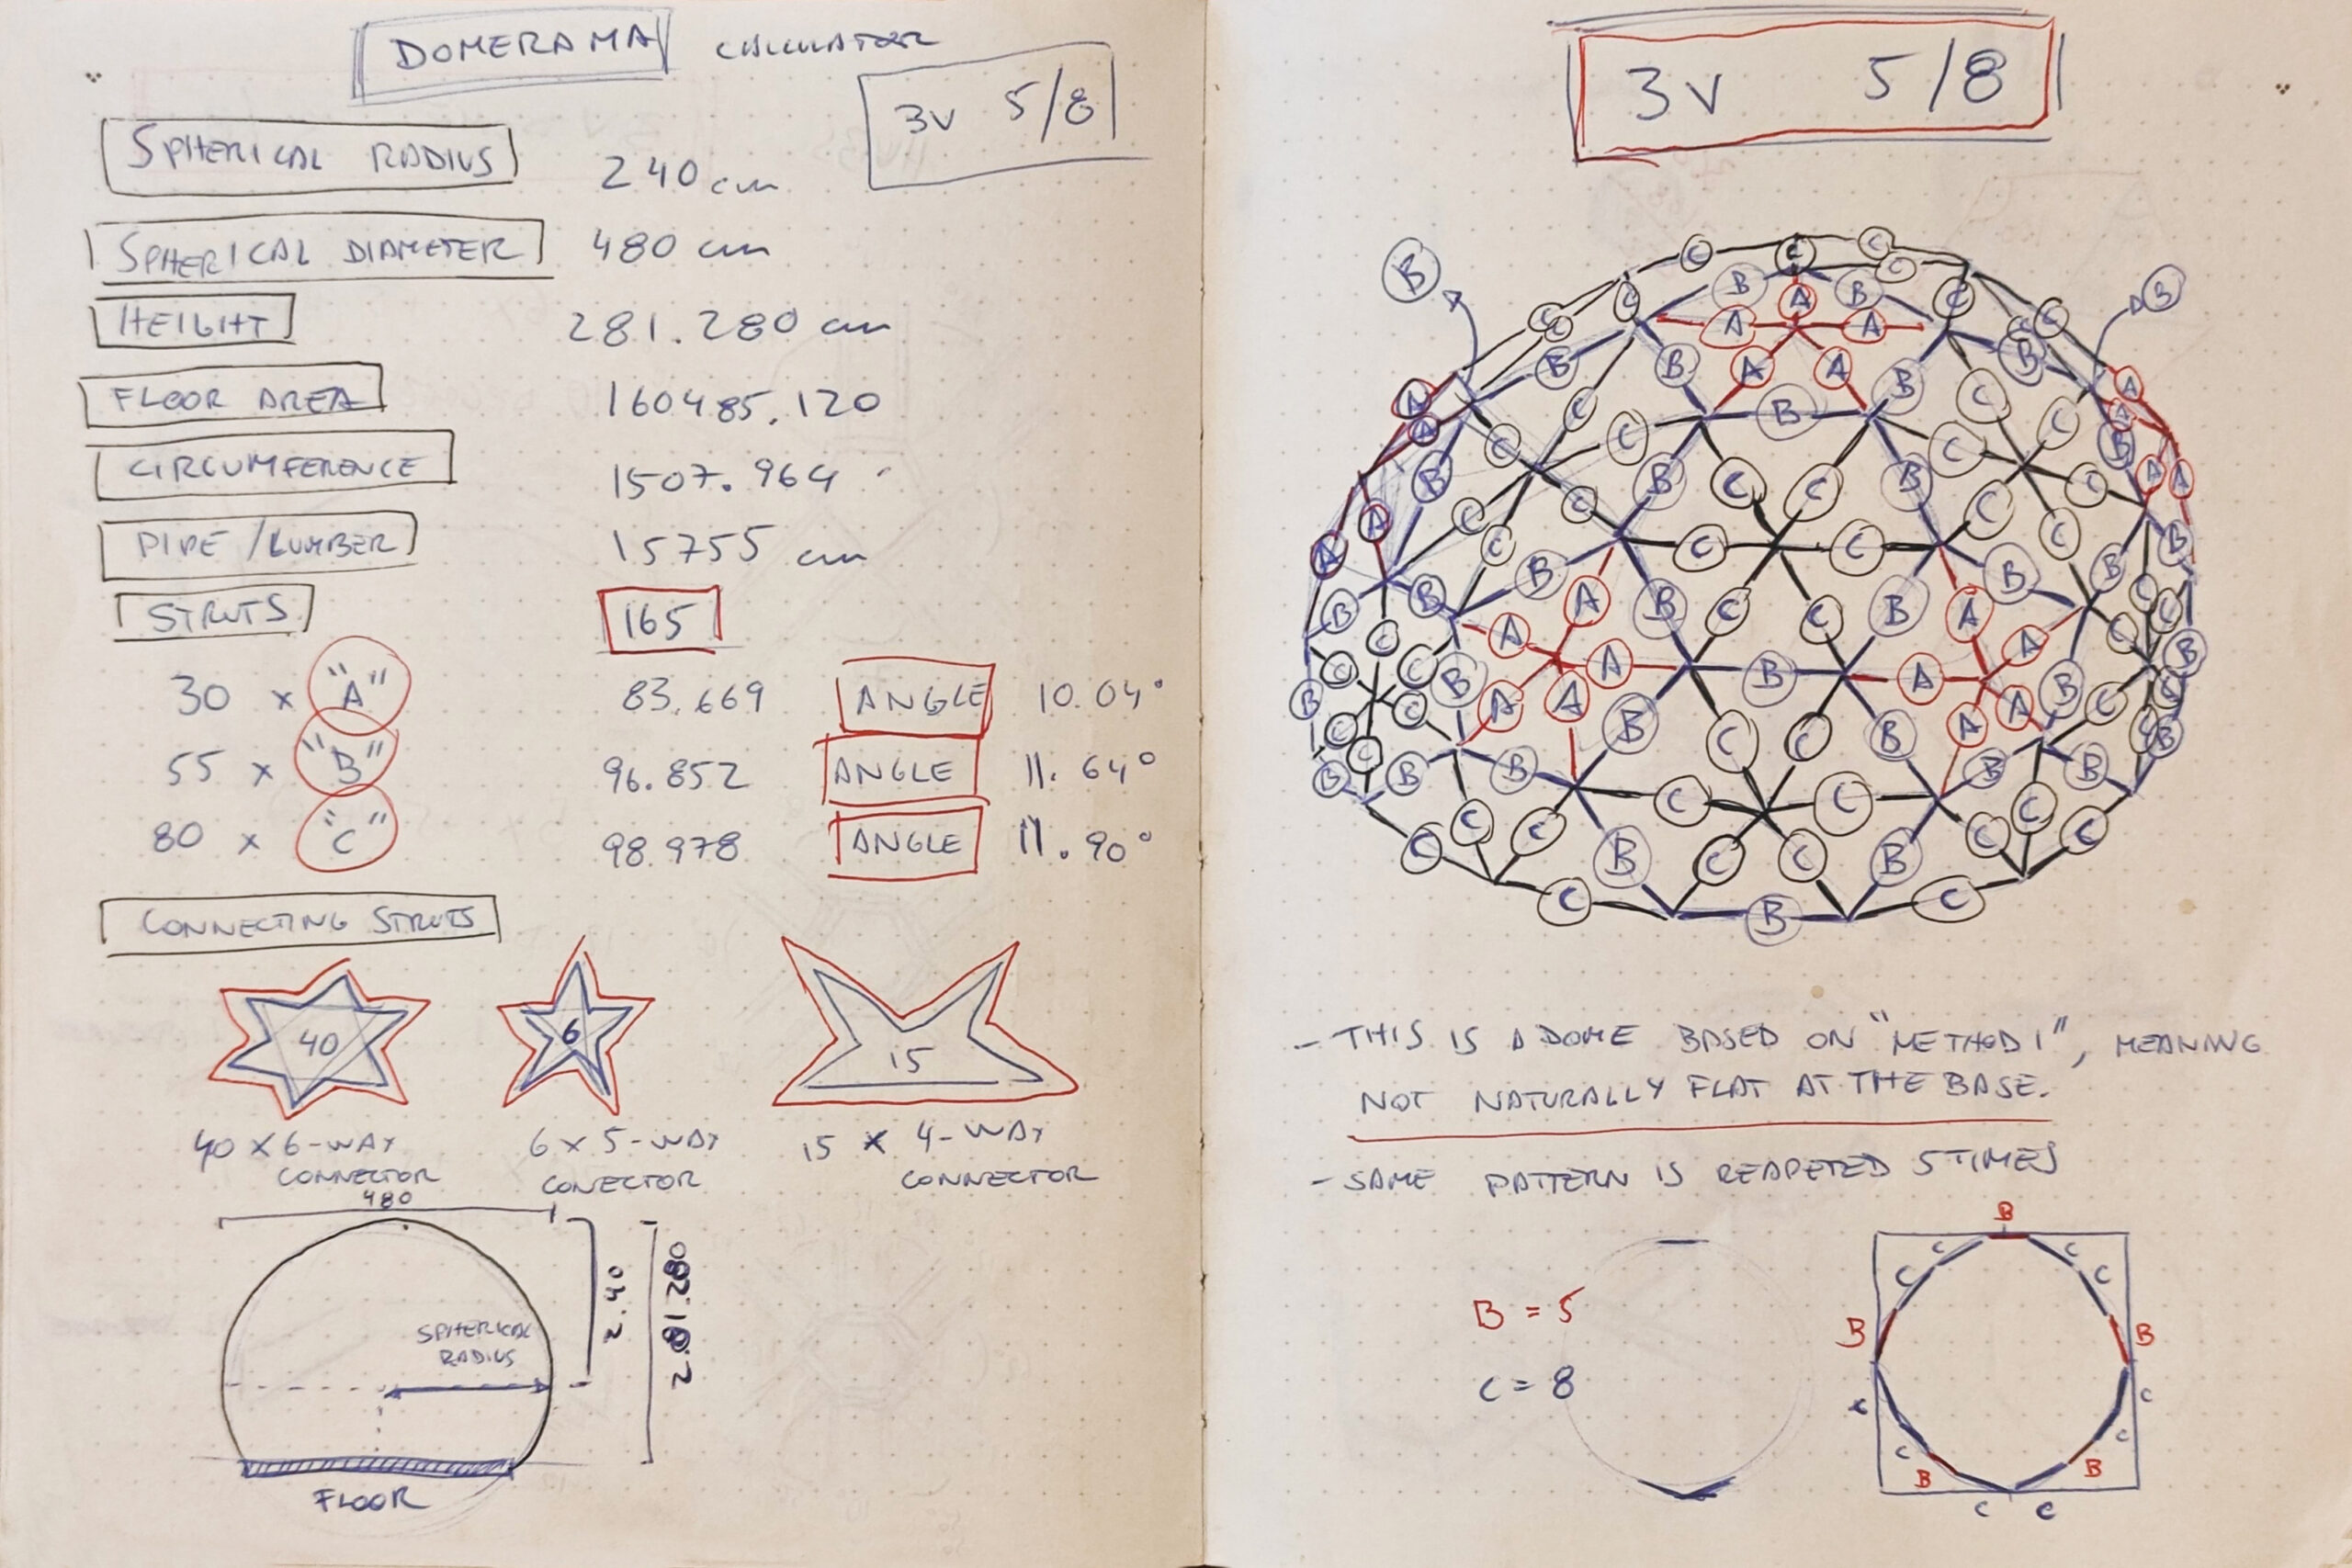 DOMERAMA CALCULATOR
3V 5/8
SPHERICAL RADIUS 240 cm
SPHERICAL DIAMETER 480 cm
HEIGHT 281.280 cm
FLOOR AREA 160485.120
CIRCUMFERENCE 1507.964
PIPE/LUMBER 15755 cm
STRUTS 165
30 x "A" 83.669 ANGLE 10.04°
55 x "B" 96.852 ANGLE 11.64°
80 x "C" 98.978 ANGLE 11.90°
CONNECTING STRUTS
40 6 15
40 x 6-WAY CONNECTOR
6 x 5-WAY CONECTOR
15 x 4-WAY CONNECTOR
480
2.40
281.280
SPHERICAL
RADIUS
FLOOR
3V 5/8
B B
C C C C
B A B
A A
B A A B
B
C C
B C C B
C C
B A B C C B A B
A A B A A
B C C B
B B C C B B
C C C B C C B C C C
C B C
- THIS IS A DOME BASED ON "METHOD 1", MEANING
NOT NATURALLY FLAT AT THE BASE.
- SAME PATTERN IS REAPETED 5 TIMES
B = 5
C = 8
B
C C
C C
B B
C C
C C
B B
C C